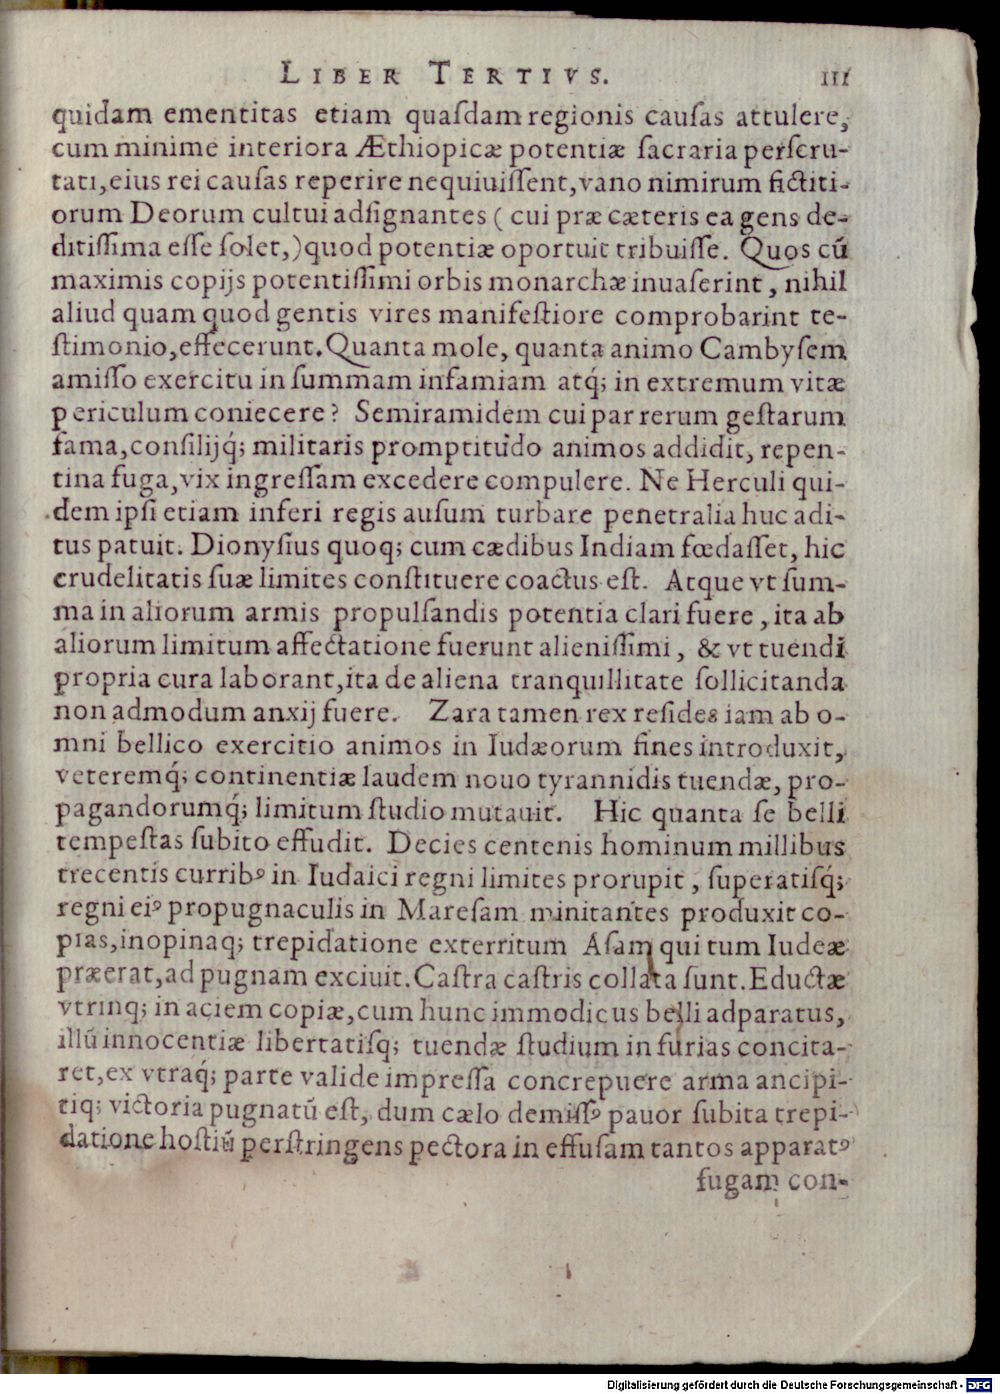 LIBER TERTIVS. 111
quidam ementitas etiam quaſdam regionis cauſas attulere,
cum minime interiora Æthiopicæ potentiæ ſacraria perſcru-
tati, eius rei cauſas reperire nequiuiſſent, vano nimirum fictiti-
orum Deorum cultui adſignantes ( cui præ cæteris ea gens de-
ditiſſima eſſe ſolet,) quod potentiæ oportuit tribuiſſe. Quos cū
maximis copijs potentiſſimi orbis monarchæ inuaſerint, nihil
aliud quam quod gentis vires manifeſtiore comprobarint te-
ſtimonio, effecerunt. Quanta mole, quanta animo Cambyſem
amiſſo exercitu in ſummam infamiam atq́; in extremum vitæ
periculum coniecere? Semiramidem cui par rerum geſtarum
fama, conſilijq́; militaris promptitudo animos addidit, repen-
tina fuga, vix ingreſſam excedere compulere. Ne Herculi qui-
dem ipſi etiam inferi regis auſum turbare penetralia huc adi-
tus patuit. Dionyſius quoq; cum cædibus Indiam fœdaſſet, hic
crudelitatis ſuæ limites conſtituere coactus eſt. Atque vt ſum-
ma in aliorum armis propulſandis potentia clari fuere, ita ab
aliorum limitum affectatione fuerunt alieniſſimi, & vt tuendi
propria cura laborant, ita de aliena tranquillitate ſollicitanda
non admodum anxij fuere. Zara tamen rex reſides iam ab o-
mni bellico exercitio animos in Iudæorum fines introduxit,
veteremq́; continentiæ laudem nouo tyrannidis tuendæ, pro-
pagandorumq́; limitum ſtudio mutauit. Hic quanta ſe belli
tempeſtas ſubito effudit. Decies centenis hominum millibus
trecentis curribꝰ in Iudaici regni limites prorupit, ſuperatiſq́;
regni eiꝰ propugnaculis in Mareſam minitantes produxit co-
pias, inopinaq; trepidatione exterritum Aſam qui tum Iudeæ
præerat, ad pugnam exciuit. Caſtra caſtris collata ſunt. Eductæ
vtrinq; in aciem copiæ, cum hunc immodicus belli adparatus,
illū innocentiæ libertatiſq; tuendæ ſtudium in furias concita-
ret, ex vtraq́; parte valide impreſſa concrepuere arma ancipi-
tiq; victoria pugnatū eſt, dum cælo demiſſꝰ pauor ſubita trepi-
datione hoſtiū perſtringens pectora in effuſam tantos apparatꝰ
fugam con-
Digitalisierung gefördert durch die Deutsche Forschungsgemeinschaft - DFG